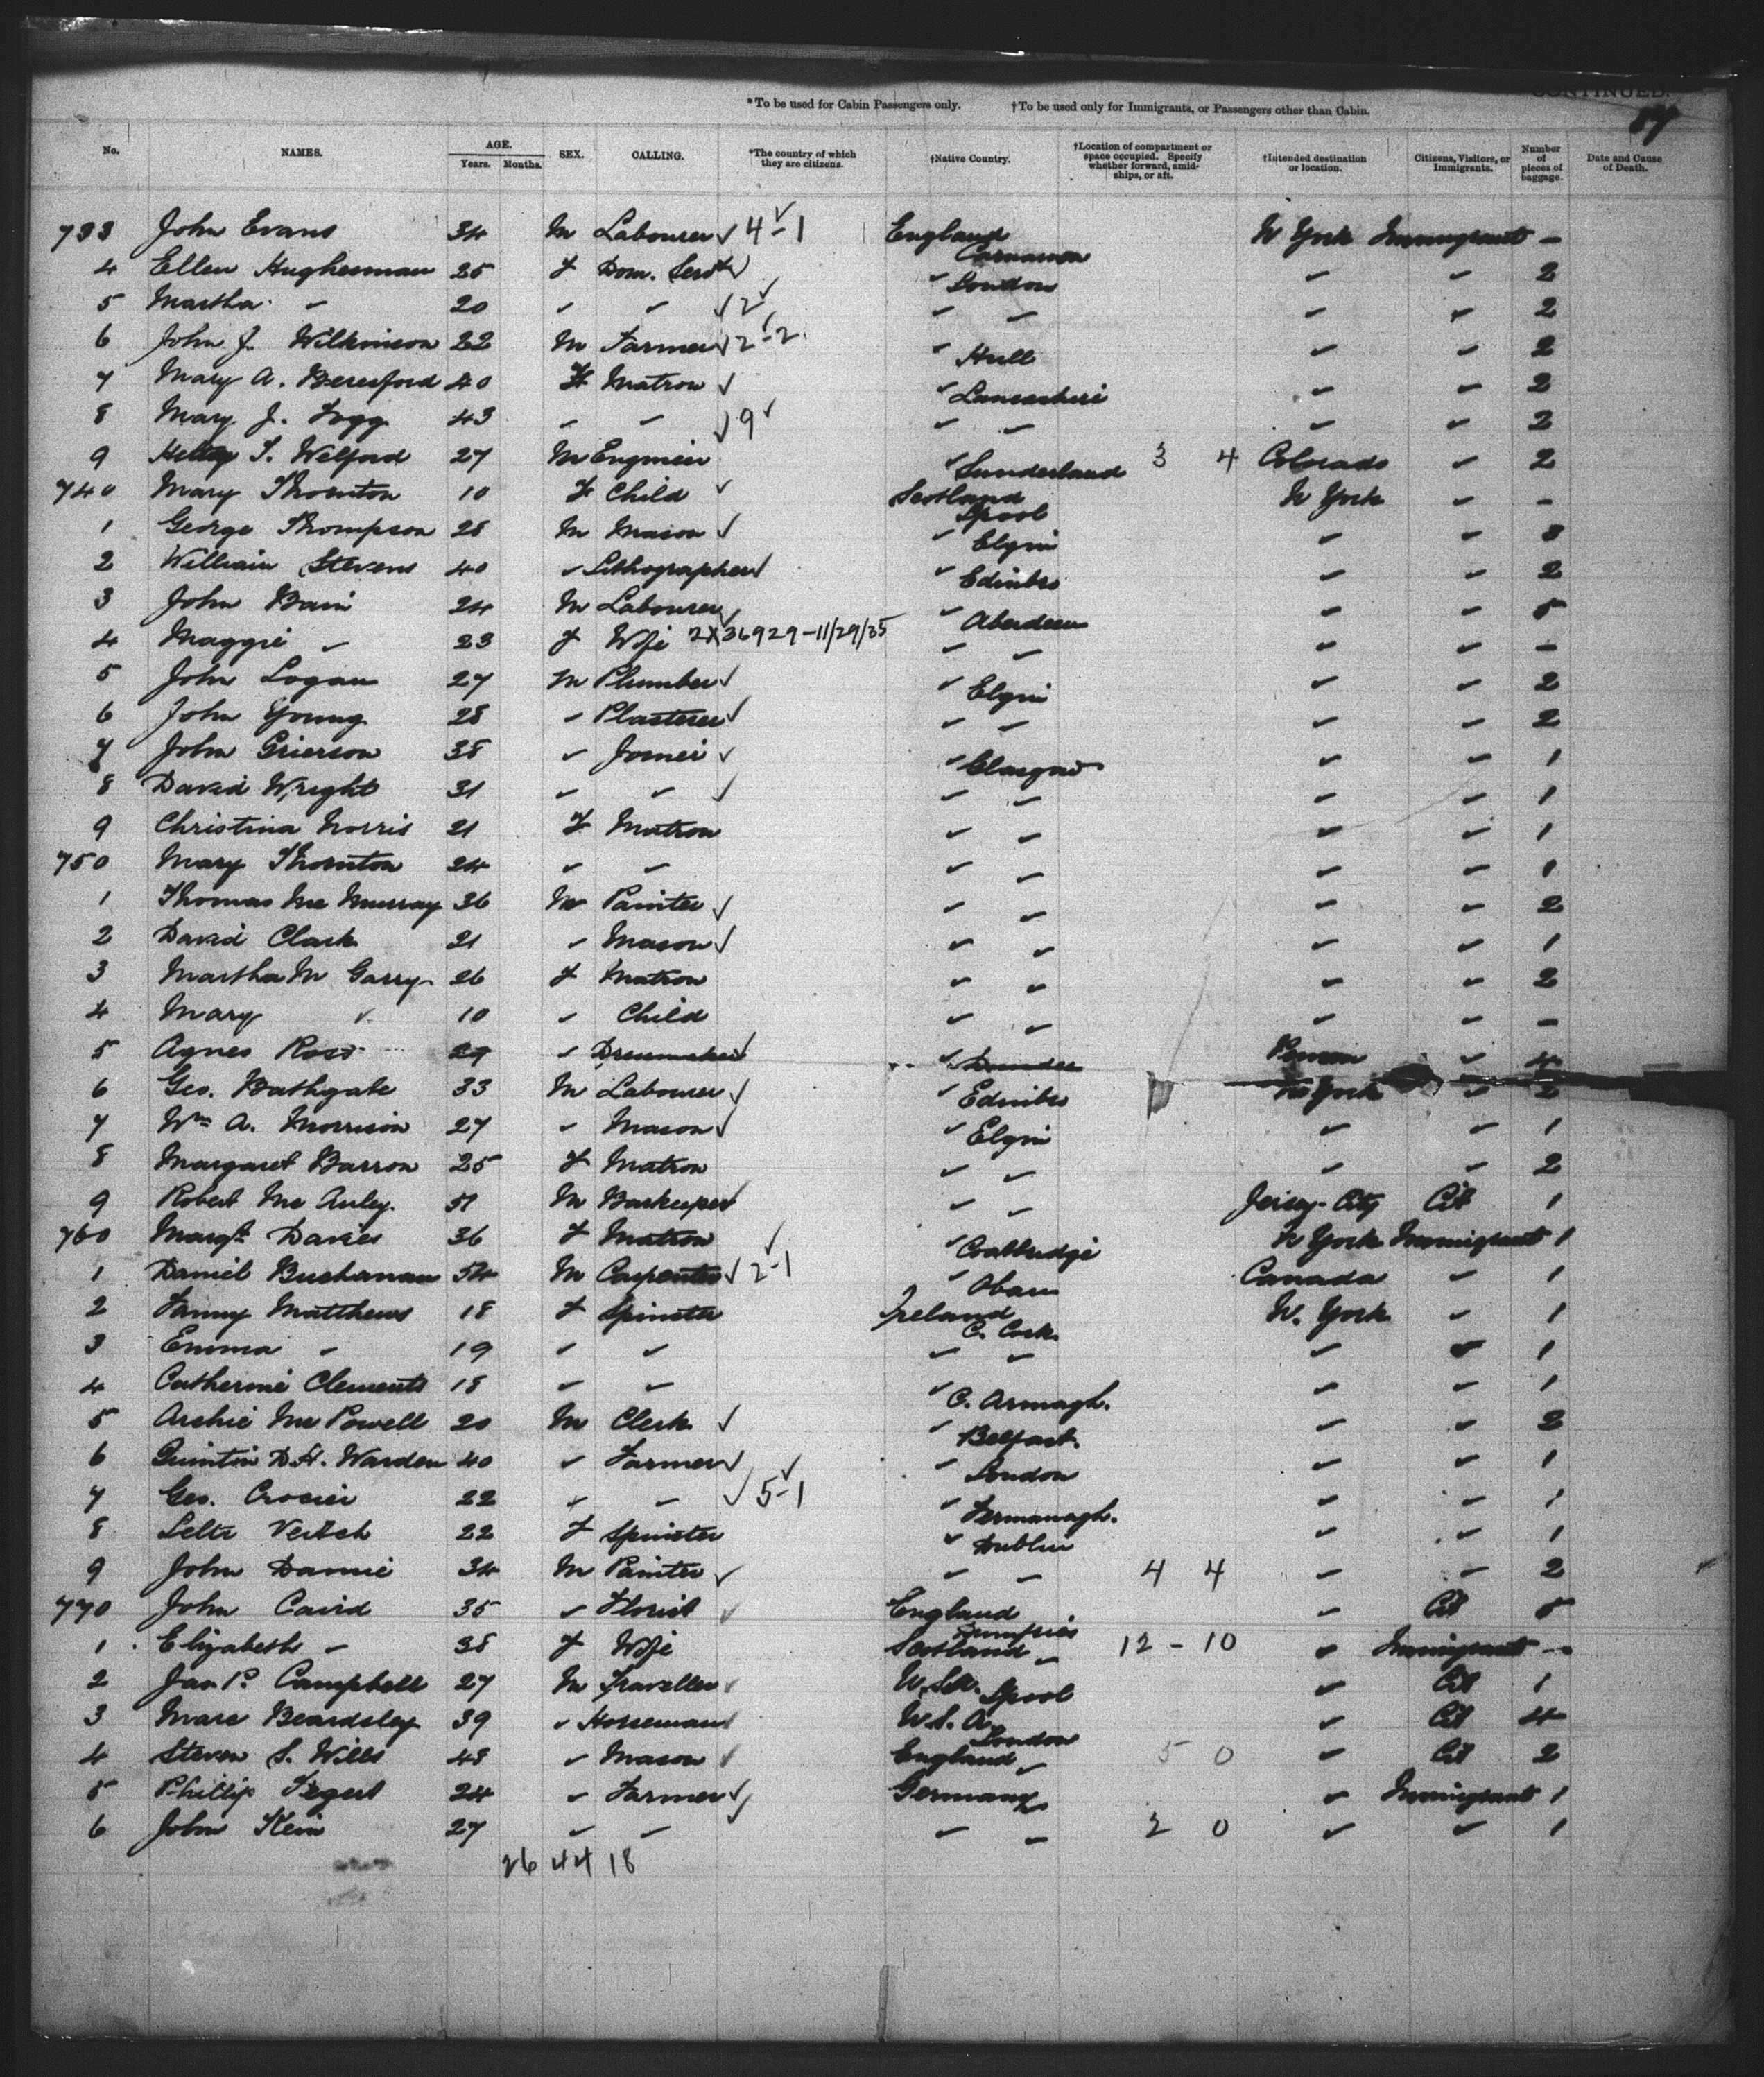 CONTINUED.
*To be used for Cabin Passengers only. †To be used only for Immigrants, or Passengers other than Cabin.
87
No. NAMES. AGE. Years. Months. SEX. CALLING. *The country of which they are citizens. †Native Country. †Location of compartment or space occupied. Specify whether forward, amidships, or aft. †Intended destination or location. Citizens, Visitors, or Immigrants. Number of pieces of baggage. Date and Cause of Death.
733 John Evans 34 M Labourer ✓ 4-1 England Carnarvon N York Immigrant -
4 Ellen Hughesman 25 F Dom. Servt ✓ " London " " 2
5 Martha " 20 " " ✓ 2 " " " " 2
6 John J. Wilkinson 22 M Farmer ✓ 2-2 " Hull " " 2
7 Mary A. Beresford 40 F Matron ✓ " Lancashire " " 2
8 Mary J. Fogg 43 " " ✓ 9 " " " " 2
9 T. Welford 27 M Engineer " Sunderland 3 4 Colorado " 2
740 Mary Thornton 10 F Child ✓ Scotland Lpool N York " -
1 George Thompson 28 M Mason ✓ " Elgin " " 3
2 William Stevens 40 " Lithographer ✓ " Edinbro " " 2
3 John Bain 24 M Labourer ✓ " Aberdeen " " 5
4 Maggie " 23 F Wife 2X36929-11/29/35 " " " " -
5 John Logan 27 M Plumber ✓ " Elgin " " 2
6 John Young 28 " Plasterer ✓ " " " " 2
7 John Grierson 38 " Joiner ✓ " Glasgow " " 1
8 David Wright 31 " " ✓ " " " " 1
9 Christina Norris 21 F Matron " " " " 1
750 Mary Thornton 24 " " " " " " 1
1 Thomas Mc Murray 36 M Painter ✓ " " " " 2
2 David Clark 21 " Mason ✓ " " " " 1
3 Martha M Garry 26 F Matron " " " " 2
4 Mary " 10 " Child " " " " -
5 Agnes Ross 29 " Dressmaker ✓ " Dundee " 4
6 Geo. Bathgate 33 M Labourer ✓ " Edinbro N York " 2
7 Wm A. Morrison 27 " Mason ✓ " Elgin " " 1
8 Margaret Barron 25 F Matron " " " " 2
9 Robert Mc Auley 51 M Barkeeper ✓ " " Jersey City Cit 1
760 Margt Davies 36 F Matron " Coatbridge N York Immigrant 1
1 Daniel Buchanan 54 M Carpenter ✓ 2-1 " Oban Canada " 1
2 Fanny Matthews 18 F Spinster Ireland C. Cork N. York " 1
3 Emma " 19 " " " " " " 1
4 Catherine Clements 18 " " " C. Armagh. " " 1
5 Archie Mc Powell 20 M Clerk ✓ " Belfast. " " 2
6 Quintin D.H. Warden 40 " Farmer ✓ " London " " 1
7 Geo. Crosier 22 " " ✓ 5-1 " Fermanagh. " " 1
8 Veitch 22 F Spinster " Dublin " " 1
9 John 34 M Painter ✓ " " 4 4 " " 2
770 John Caird 35 " Florist ✓ England Dumfries " Cit 5
1 Elizabeth " 38 F Wife Scotland " 12 - 10 " Immigrant -
2 Jas. P. Campbell 27 M Traveller ✓ U.S.A. Lpool " Cit 1
3 Marc Beardsley 39 " Horseman ✓ U.S.A. London " Cit 4
4 Steven S. Wills 48 " Mason ✓ England " 5 0 " Cit 2
5 Phillip Fegert 24 " Farmer ✓ Germany " " Immigrant 1
6 John Klein 27 " " ✓ " " 2 0 " " 1
26 44 18